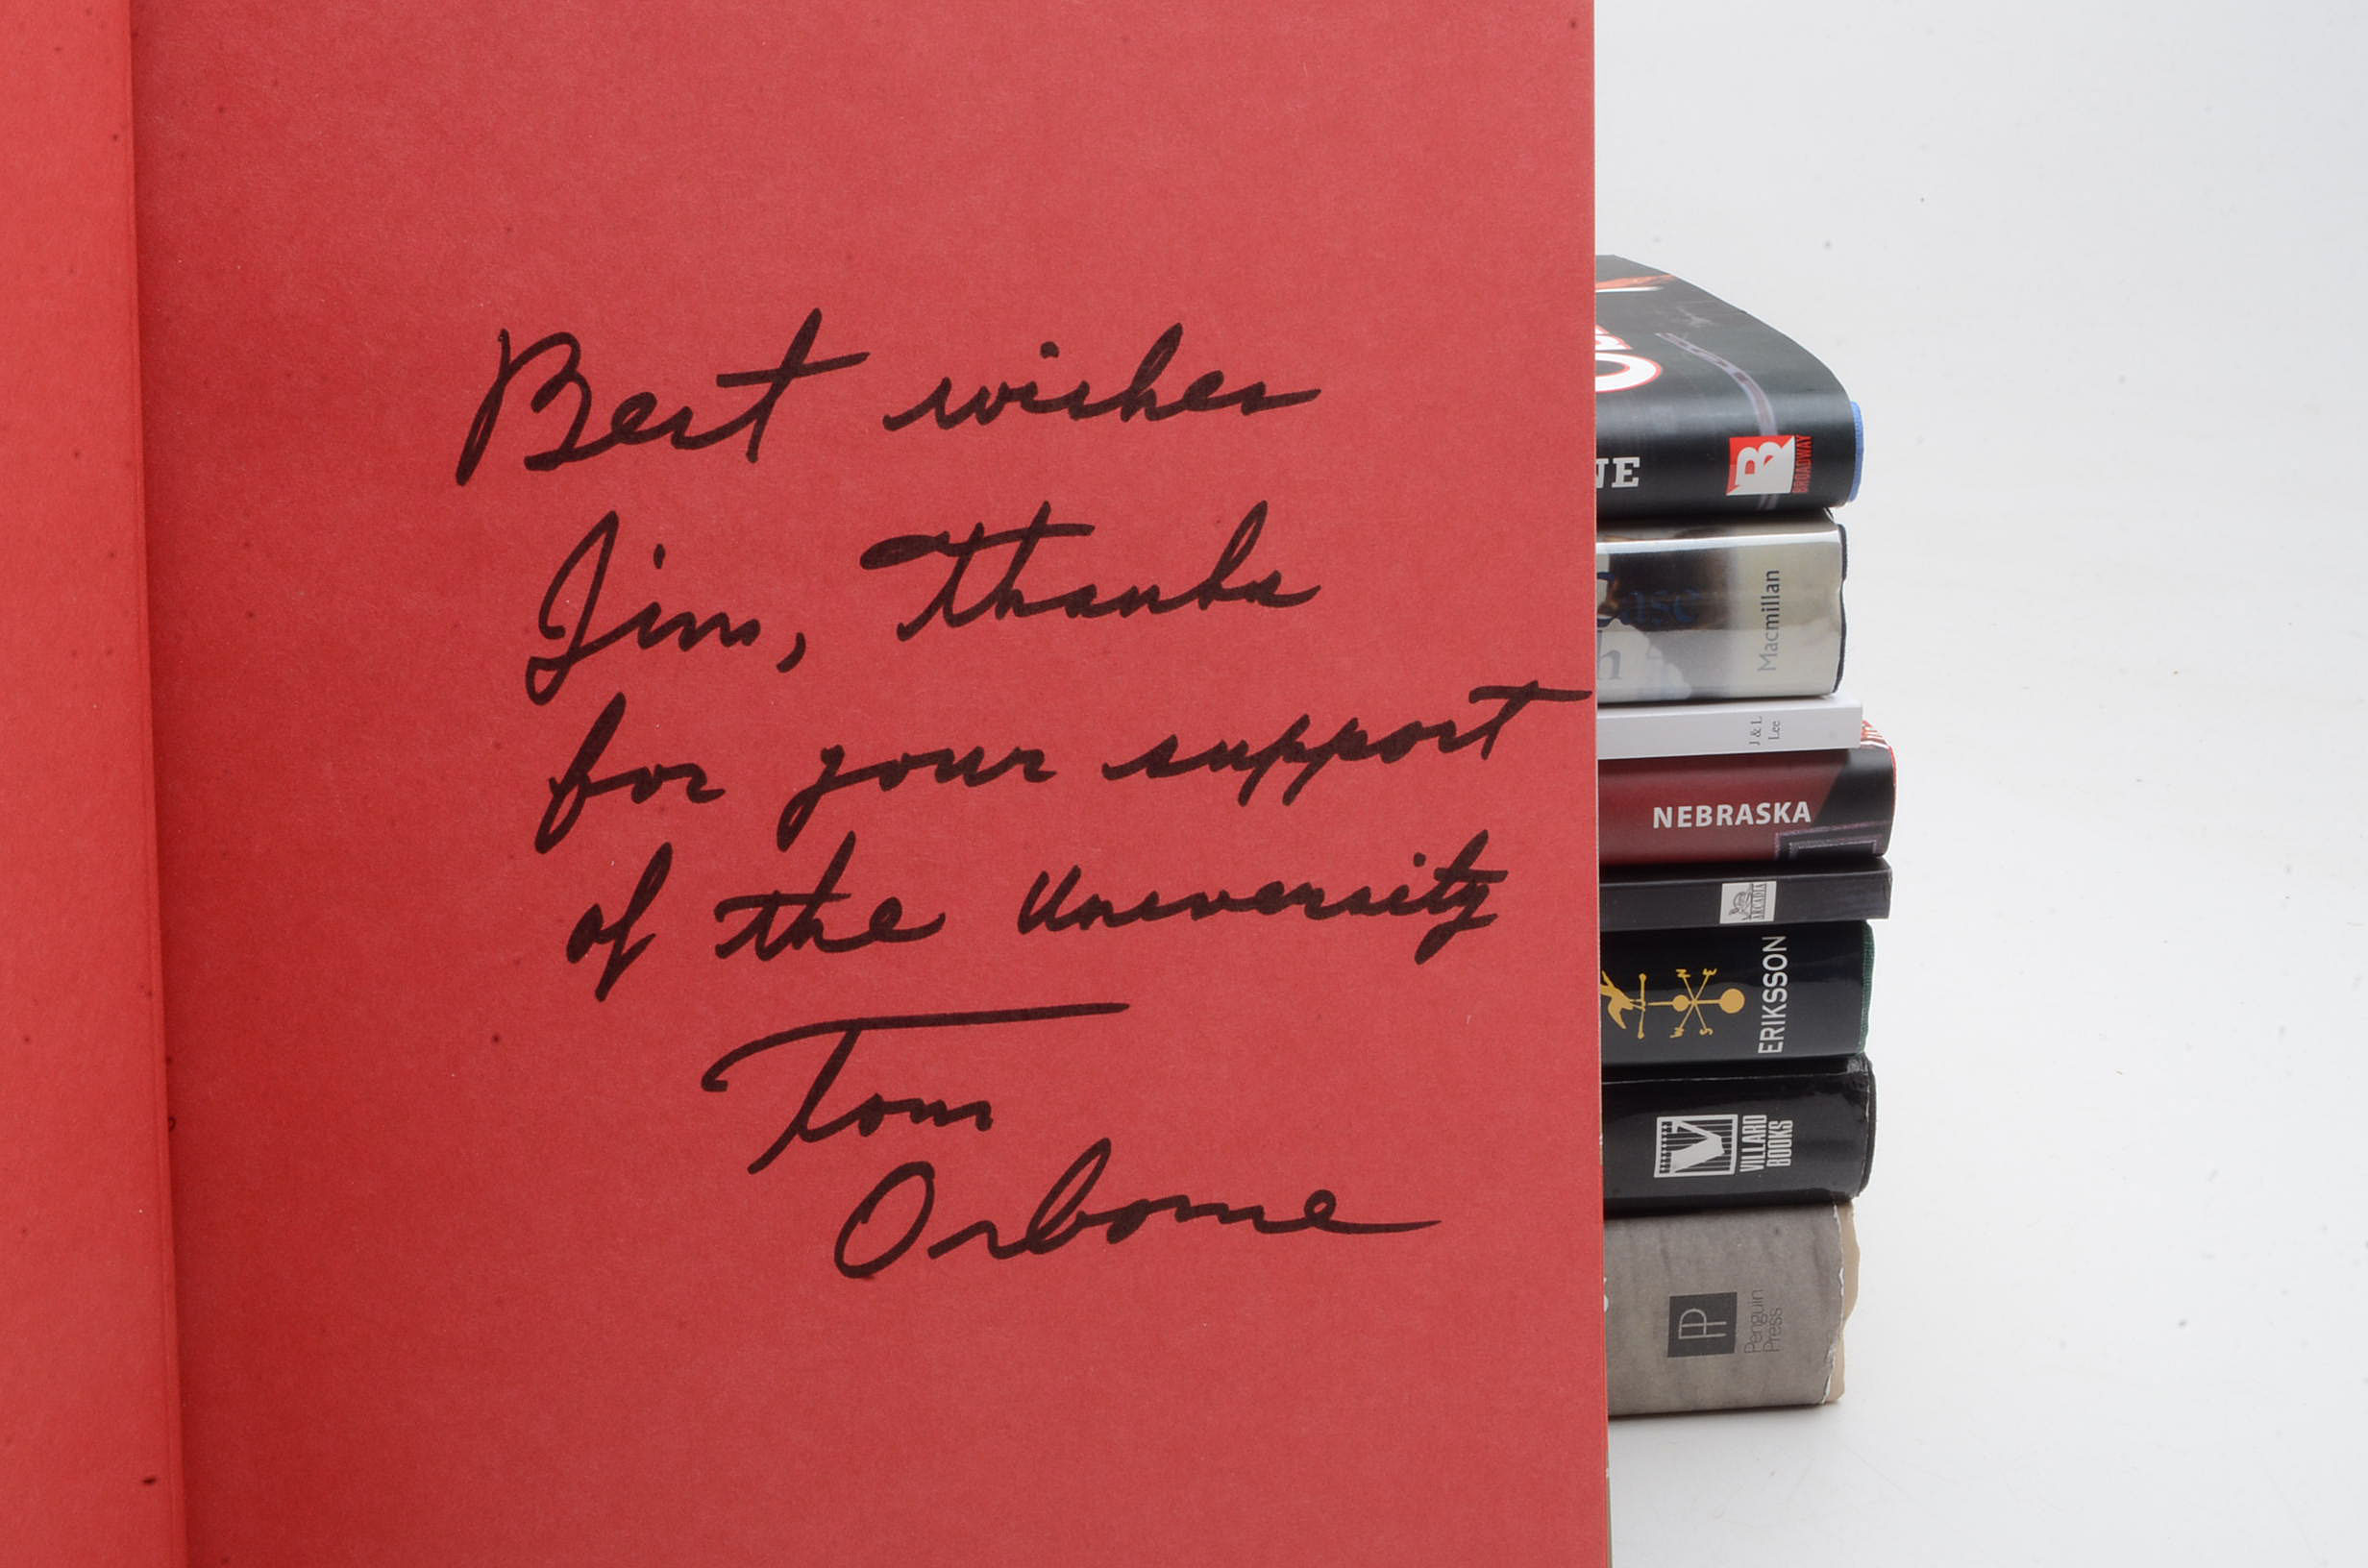 Best wishes
Jim, Thanks
for your support
of the University
Tom
Osborne
NE
B
BROADWAY
Macmillan
J & L
Lee
NEBRASKA
ARCADIA
N E
W S
ERIKSSON
V
VILLARD
BOOKS
Penguin
Press